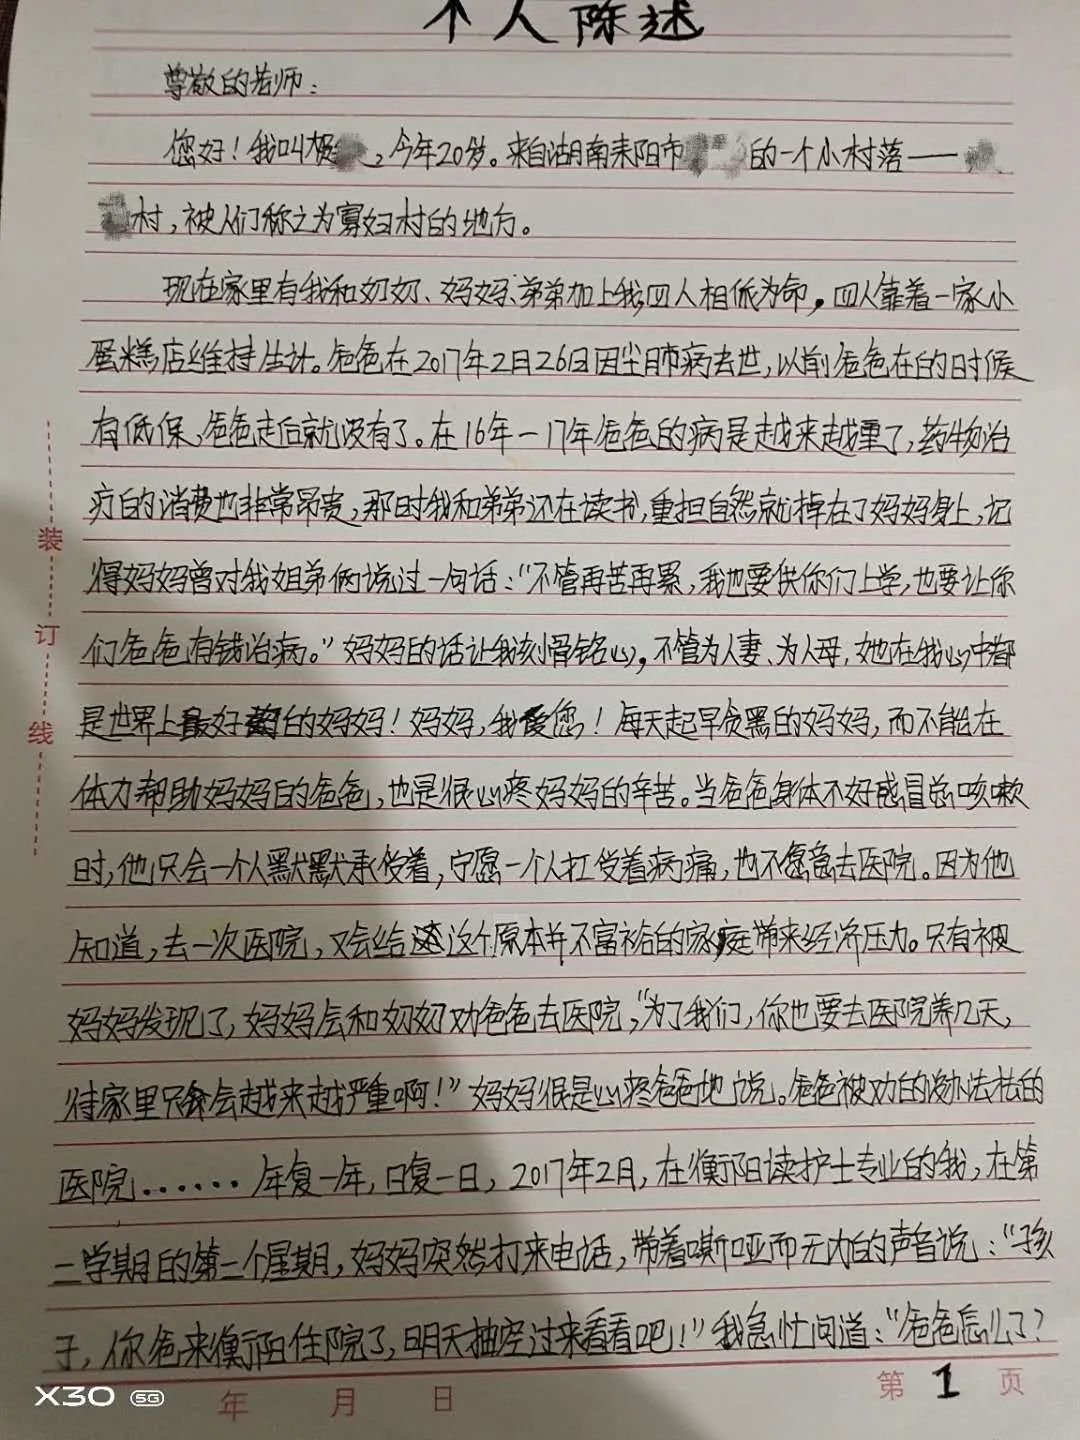 个人陈述
尊敬的老师：
您好！我叫杨，今年20岁。来自湖南耒阳市的一个小村落——
村，被人们称之为寡妇村的地方。
现在家里有我和奶奶、妈妈、弟弟加上我四人相依为命，四人靠着一家小
蛋糕店维持生计。爸爸在2017年2月26日因尘肺病去世，以前爸爸在的时候
有低保，爸爸走后就没有了。在16年—17年爸爸的病是越来越重了，药物治
疗的消费也非常昂贵，那时我和弟弟还在读书，重担自然就掉在了妈妈身上，记
得妈妈曾对我姐弟俩说过一句话：“不管再苦再累，我也要供你们上学，也要让你
们爸爸有钱治病。”妈妈的话让我刻骨铭心，不管为人妻、为人母，她在我心中都
是世界上最好的妈妈！妈妈，我爱您！每天起早贪黑的妈妈，而不能在
体力帮助妈妈的爸爸，也是很心疼妈妈的辛苦。当爸爸身体不好感冒总咳嗽
时，他只会一个人默默承受着，宁愿一个人扛受着病痛，也不愿意去医院。因为他
知道，去一次医院，又会给这个原本并不富裕的家庭带来经济压力。只有被
妈妈发现了，妈妈会和奶奶劝爸爸去医院，“为了我们，你也要去医院养几天，
待家里只会越来越严重啊！”妈妈很是心疼爸爸地说。爸爸被劝的没办法祛的
医院……年复一年，日复一日，2017年2月，在衡阳读护士专业的我，在第
二学期的第二个星期，妈妈突然打来电话，带着嘶哑而无力的声音说：“孩
子，你爸来衡阳住院了，明天抽空过来看看吧！”我急忙问道：“爸爸怎么了？
装
订
线
年 月 日
第1页
X30 5G